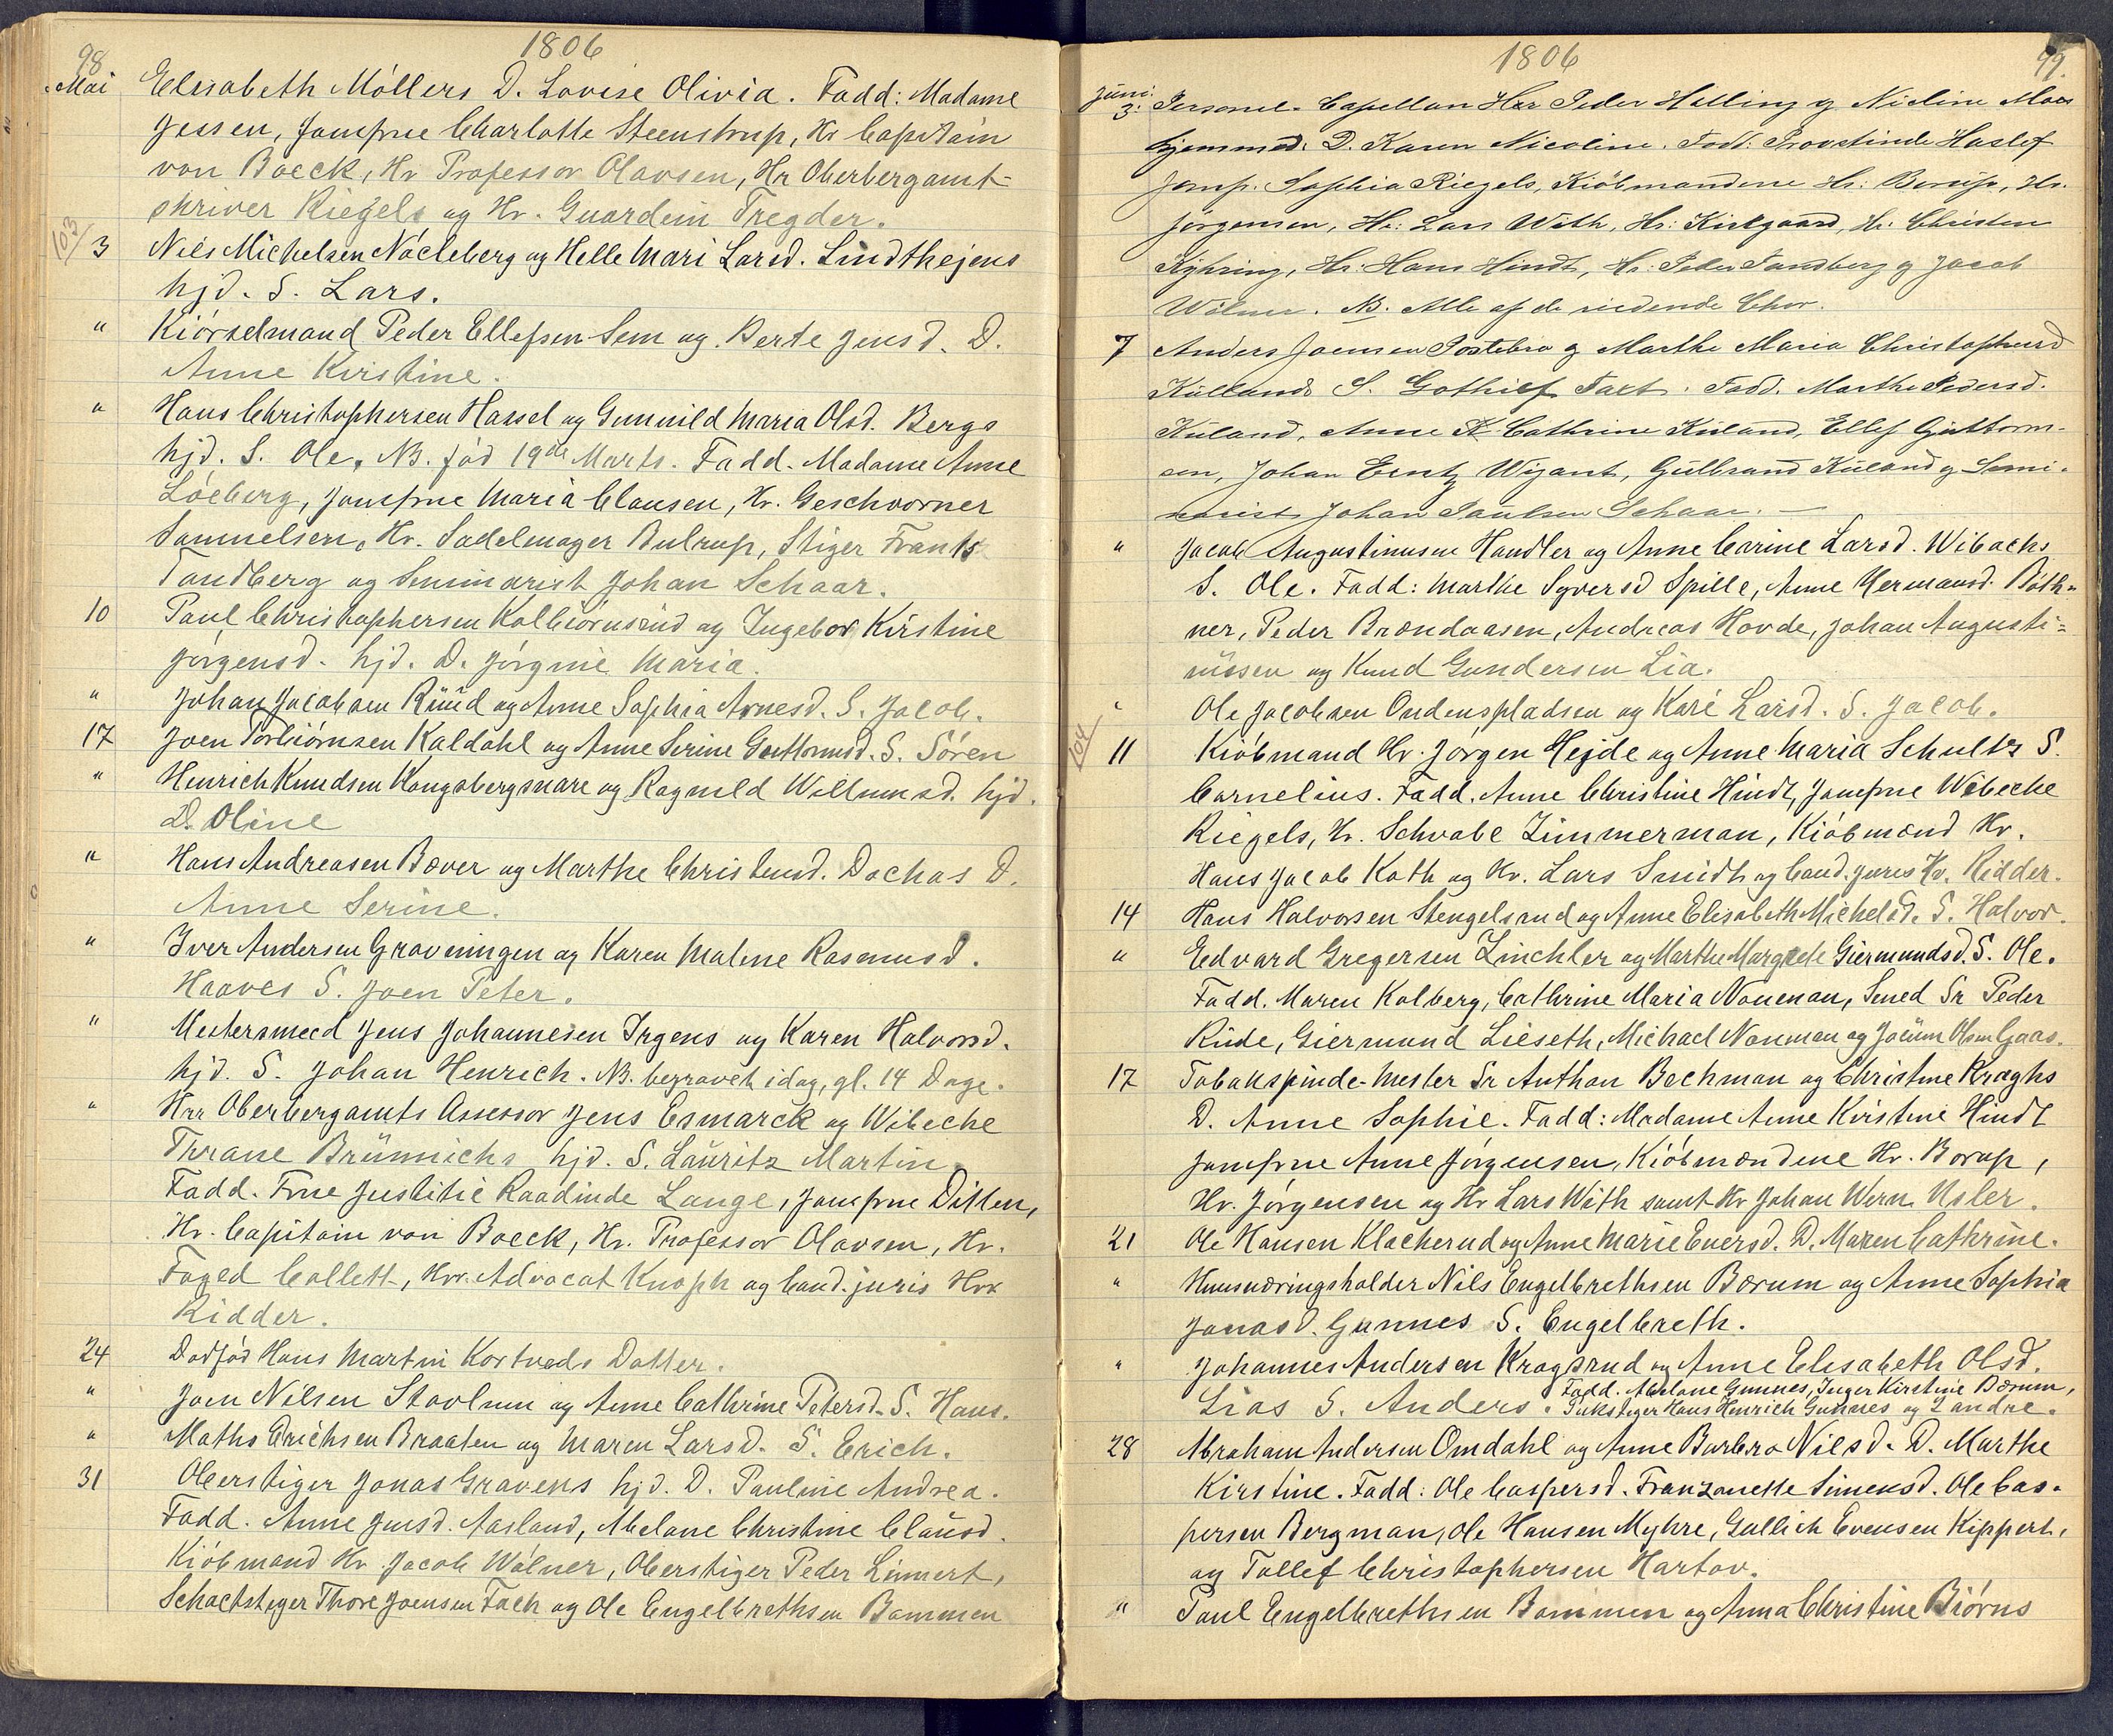 98
1806
Mai Elisabeth Möllers D. Lovise Olivia. Fadd: Madame
Jessen, Jomfrue Charlotte Steenstrup, Hr Capitain
von Boeck, Hr Professor Olavsen, Hr Oberbergamt-
skriver Riegels og Hr. Guardein Tregder.
103/ 3 Niels Michelsen Nácleberg og Helle Mari Larsd. Lindthejens
hjd. S. Lars.
" Kiörselmand Peder Ellefsen Sem og Berte Jensd. D.
Anne Kirstine.
" Hans Christophersen Hassel og Gunnild Maria Olsd. Bergs
hjd. S. Ole, NB. föd 19de Marts. Fadd. Madame Anne
Löeberg, Jomfrue Maria Clausen, Hr. Geschvorner
Samuelsen, Hr. Sadelmager Bulrup, Stiger Frants
Tandberg og Seminarist Johan Schaar.
10 Paul Christophersen Kolbiörnsrud og Ingebor Kirstine
Jörgensd. hjd. D. Jörgine Maria.
" Johan Jacobsen Rúúd og Anne Sophia Arnesd. S. Jacob.
17 Joen Torbiörnsen Kaldahl og Anne Serine Guttormsd. S. Sören
" Henrich Knudsen Kongsbergsnare og Ragnild Willumsd. hjd.
D. Oline
" Hans Andreasen Bæver og Marthe Christensd. Dochas D.
Anne Serine.
" Iver Andersen Graveningen og Karen Malene Rasmusd.
Haaves S. Joen Peter.
" Mestersmed Jens Johannesen Irgens og Karen Halvorsd.
hjd. S. Johan Henrich. NB. begravet idag, gl. 14 Dage.
" Hrr Oberbergamts Assessor Jens Esmarck og Wibeche
Thrane Brünnichs hjd. S. Lauritz Martin
Fadd. Frue Justitie Raadinde Lange, Jomfrue Ditten,
Hr. Capitain von Boeck, Hr. Professor Olavsen, Hr.
Foged Collett, Hrr. Advocat Knoph og Cand. juris Hrr
Ridder.
24 Dödföd Hans Martin Kortveds Datter.
" Joen Nilsen Stavlum og Anne Cathrine Petersd. S. Hans.
" Maths Erichsen Braaten og Maren Larsd. S. Erich.
31 Oberstiger Jonas Gravens hjd. D. Pauline Andrea.
Fadd. Anne Jensd. Aasland, Abelone Christine Clausd.
Kiöbmand Hr Jacob Wölner, Oberstiger Peder Linnert,
Schactstiger Thore Joensen Fæh og Ole Engelbrethsen Bammen
1806
99.
Juni. 3: Personel-Capellan Hrr Peder Helling og Nicline Moes
hjemmed. D. Karen Nicoline. Fadd: Provstinde Haslef
Jomf. Sophia Riegels, Kiöbmændene Hr: Borup, Hr.
Jörgensen, Hr: Lars With, Hr: Kirkgaard, Hr. Christen
Kyhring, Hr: Hans Hindt, Hr: Peter Tandberg og Jacob
Wölner. NB. Alle af de ridende Chor.
7 Anders Joensen Postebro og Marthe Maria Christophersd
Kullands S. Gothilf Fart. Fadd. Marthe Pedersd.
Kuland, Anne K Cathrine Kuland, Ellef Guttorm-
sen, Johan Erntz Wizant, Gulbrand Kuland og Semi-
narist Johan Paulsen Schaar. —
" Jacob Augustinusen Handler og Anne Carine Larsd. Wibachs
S. Ole. Fadd: Marthe Syversd Spille, Anne Hermansd. Böth-
ner, Peder Brændaasen, Andreas Hovde, Johan Augusti=
nüssen og Knud Gundersen Lia.
" Ole Jacobsen Oudenspladsen og Kari Larsd. S. Jacob.
104/ 11 Kiöbmand Hr. Jörgen Hejde og Anne Maria Schults S.
Cornelius. Fadd. Anne Christine Hindt, Jomfrue Wibecke
Riegels, Hr. Schvabe Zimmerman, Kiöbmænd Hr.
Hans Jacob Koth og Hr. Lars Smidth og Cand. juris Hr. Ridder.
14 Hans Halvorsen Stengelsrud og Anne Elisabeth Michelsd. S. Halvor.
" Edvard Gregersen Zinchler og Marthe Margrete Giermundsd. S. Ole.
Fadd. Maren Kolberg, Cathrine Maria Nouman, Smed Sr Peder
Rude, Giermund Lieseth, Michael Nouman og Joküm Olsen Gaas.
17 Tobakspinde-Mester Sr Anthon Bechman og Christine Kraghs
D. Anne Sophie. Fadd: Madame Anne Kirstine Hindt
Jomfrue Anne Jörgensen, Kiöbmændene Hr. Borup,
Hr. Jörgensen og Hr Lars With samt Hr Johan Wern. Usler.
21 Ole Hansen Klacherud og Anne Marie Eversd. D. Maren Cathrine.
" Huusnæringsholder Nils Engelbrethsen Bærum og Anne Sophia
Jonasd. Gunnes S. Engelbreth.
" Johannes Andersen Kragsrud og Anne Elisabeth Olsd.
Lias S. Anders. Fadd. Abelone Gunnes, Inger Kirstine Bærum,
Pukstiger Hans Henrich Gunnes og 2 andre.
28 Abraham Andersen Omdahl og Anne Barbro Nilsd. D. Marthe
Kirstine. Fadd: Ole Caspersd. Franzonette Simensd. Ole Cas-
persen Bergman, Ole Hansen Myhre, Gullich Evensen Kippert,
og Tollef Christophersen Hartov.
" Paul Engelbrethsen Bammen og Anna Christine Biörns